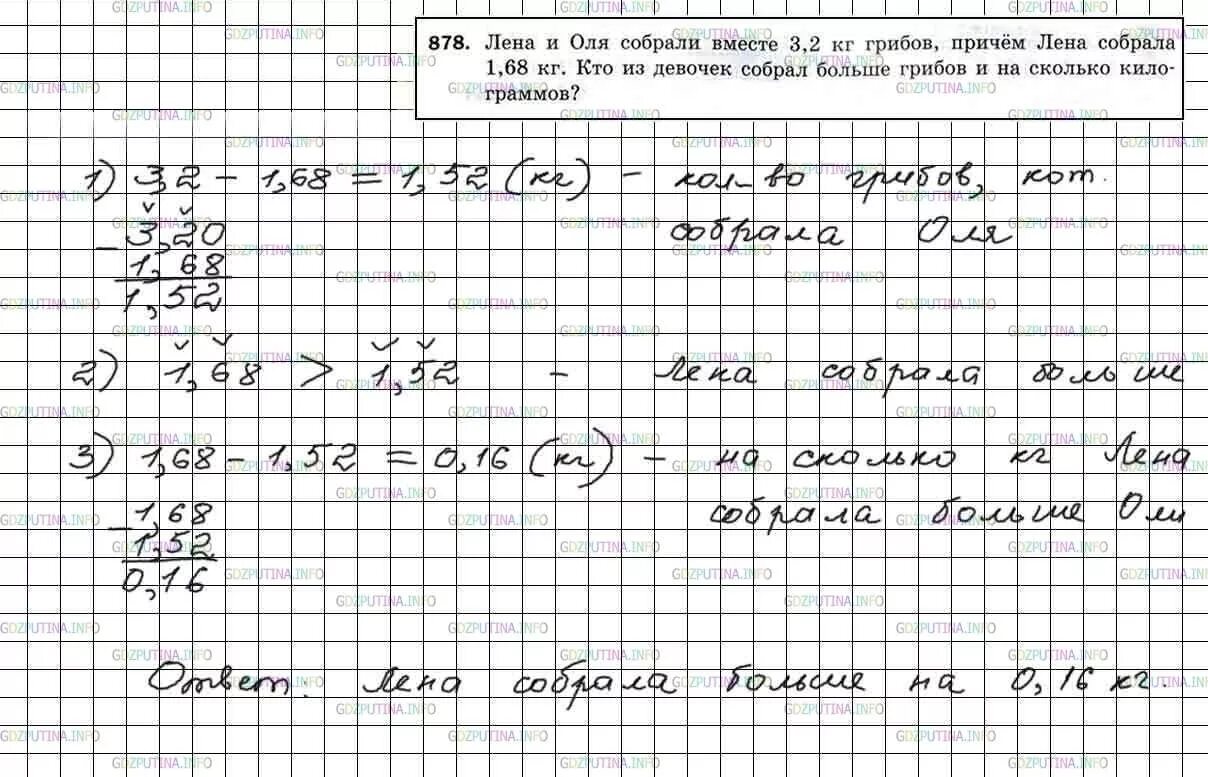 878. Лена и Оля собрали вместе 3,2 кг грибов, причём Лена собрала
1,68 кг. Кто из девочек собрал больше грибов и на сколько кило-
граммов?
1) 3,2 - 1,68 = 1,52 (кг) - кол-во грибов, кот.
собрала Оля
- 3,20
1,68
1,52
2) 1,68 > 1,52 - Лена собрала больше
3) 1,68 - 1,52 = 0,16 (кг) - на сколько кг Лена
собрала больше Оли
- 1,68
1,52
0,16
Ответ: Лена собрала больше на 0,16 кг.
GDZPUTINA.INFO